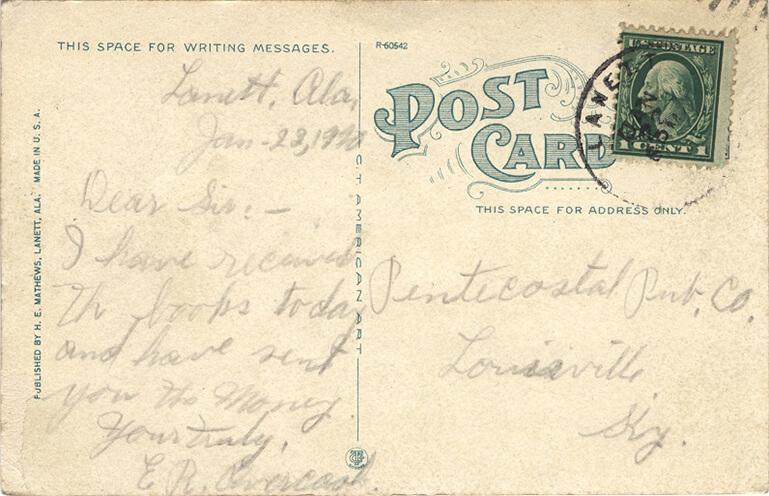 THIS SPACE FOR WRITING MESSAGES.
R-60542
POST CARD
U.S. POSTAGE
1 CENT 1
LANETT
JAN
THIS SPACE FOR ADDRESS ONLY.
PUBLISHED BY H. E. MATHEWS, LANETT, ALA. MADE IN U. S. A.
CT AMERICAN ART
Lanett, Ala,
Jan-23,
Dear Sir:-
I have received
The books today
and have sent
you the money.
Yours truly,
E. R. Overcash.
Pentecostal Pub. Co.
Louisville
Ky.